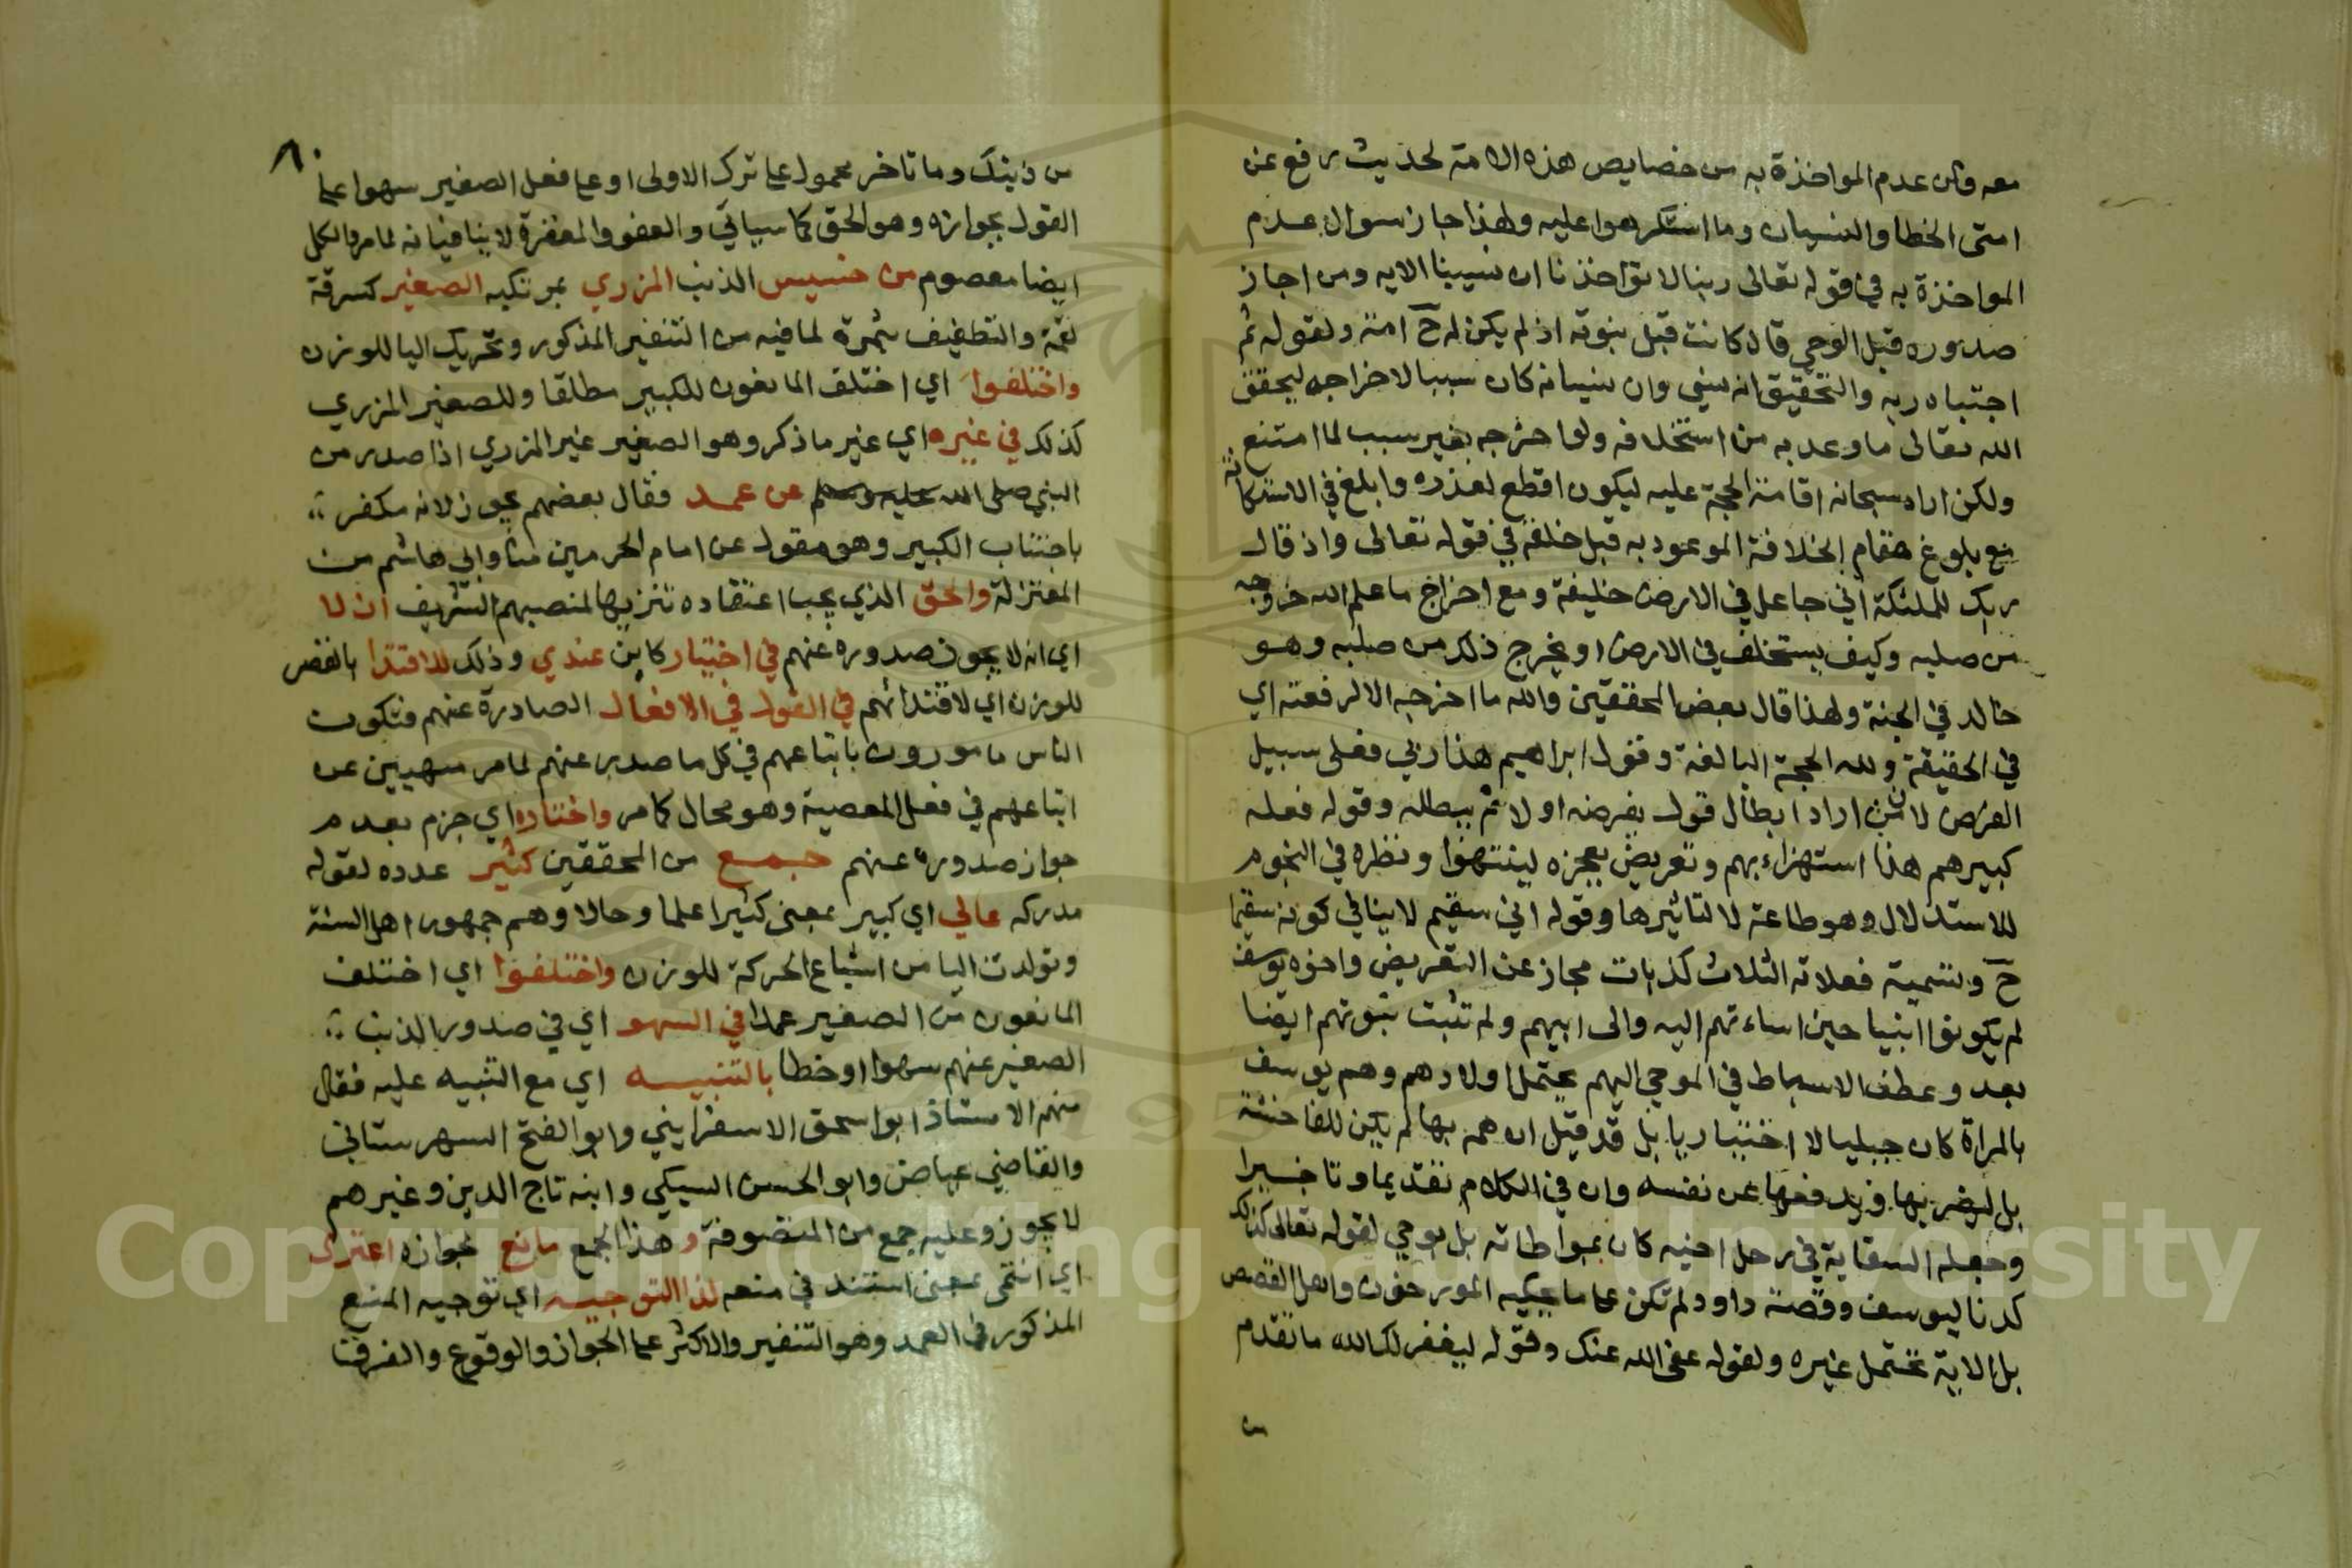 معه وكان عدم المواخذة به من خصايص هذه الامة لحديث رفع عن
امتى الخطا والنسيان وما استكرهوا عليه ولهذا جاز سوال عدم
المواخذة به في قوله تعالى ربنا لا تواخذنا ان نسينا الايه ومن اجاز
صدوره قبل الوحي قال كانت قبل نبوته اذ لم يكن له ح امة ولقوله ثم
اجتباه ربه والتحقيق انه نسي وان نسيانه كان سببا لاخراجه ليحقق
الله تعالى ما وعد به من استخلافه ولو اخرجه بغير سبب لما امتنع
ولكن اراد سبحانه اقامة الحجة عليه ليكون اقطع لعذره وابلغ في الاستكانة
مع بلوغ مقام الخلافة الموعود به قبل خلقه في قوله تعالى واذ قال
ربك للملئكة اني جاعل في الارض خليفة ومع اخراج ما علم الله خروجه
من صلبه وكيف يستخلف في الارض او يخرج ذلك من صلبه وهو
خالد في الجنة ولهذا قال بعض المحققين والله ما اخرجه الا لرفعته اي
في الحقيقة ولله الحجة البالغة وقول ابراهيم هذا ربي فعلى سبيل
الفرض لان من اراد ابطال قول يفرضه اولا ثم يبطله وقوله فعله
كبيرهم هذا استهزاء بهم وتعريض بعجزه لينتهوا ونظره في النجوم
للاستدلال وهو طاعة لا لتاثيرها وقوله اني سقيم لا ينافي كونه سقيما
ح وتسمية فعلاته الثلاث كذبات مجاز عن التعريض واخوه يوسف
لم يكونوا انبيا حين اساءتهم اليه والى ابيهم ولم تثبت نبوتهم ايضا
بعد وعطف الاسباط في الموحي اليهم يحتمل اولادهم وهم يوسف
بالمراة كان جبليا لا اختياريا بل قد قيل ان همه بها لم يكن للفاحشة
بل ليضربها ويدفعها عن نفسه وان في الكلام تقديما وتاخيرا
وجعله السقاية في رحل اخيه كان بمواطاته بل بوحي لقوله تعالى كذلك
كدنا ليوسف وقصة داود لم تكن على ما يحكيه المورخون واهل القصص
بل الاية تحتمل غيره ولقوله عفى الله عنك وقوله ليغفر لك الله ما تقدم
من
٨
من ذنبك وما تاخر محمول على ترك الاولى او على فعل الصغير سهوا على
القول بجوازه وهو الحق كما سياتي والعفو والمغفرة لا ينافيانه لما مر والكل
ايضا معصوم من خسيس الذنب المزري بمرتكبه الصغير كسرقة
لقمة والتطفيف بتمرة لما فيه من التنفير المذكور وتحريك اليا للوزن
واختلفوا اي اختلف المانعون للكبير مطلقا وللصغير المزري
كذلك في غيره اي غير ما ذكر وهو الصغير غير المزري اذا صدر من
النبي صلى الله عليه وسلم عن عمد فقال بعضهم يجوز لانه مكفر
باجتناب الكبير وهو منقول عن امام الحرمين منا وابي هاشم من
المعتزلة والحق الذي يجب اعتقاده تنزيها لمنصبهم الشريف ان لا
اي انه لا يجوز صدوره عنهم في اختيار كاين عندي وذلك للاقتدا بالقصر
للوزن اي لاقتدائهم في القول في الافعال الصادرة عنهم فتكون
الناس مامورون باتباعهم في كل ما صدر عنهم لما مر منهيين عن
اتباعهم في فعل المعصية وهو محال كما مر واختاره اي جزم بعدم
جواز صدوره عنهم جمع من المحققين كثير عدده لقوله
مدركه عالي اي كبير بمعنى كثيرا علما وحالا وهم جمهور اهل السنة
وتولدت اليا من اشباع الحركة للوزن واختلفوا اي اختلف
المانعون من الصغير عمدا في السهو اي في صدور الذنب
الصغير عنهم سهوا او خطا بالتنبيه اي مع التنبيه عليه فقال
منهم الاستاذ ابو اسحق الاسفرايني وابو الفتح الشهرستاني
والقاضي عياض وابو الحسن السبكي وابنه تاج الدين وغيرهم
لا يجوز وعليه جمع من المتصوفة وهذا الجمع مانع بجوازه اعتزى
اي انتمى بمعنى استند في منعه لذا التوجيه اي توجيه المنع
المذكور في العمد وهو التنفير والاكثر على الجواز والوقوع والفرقنا
Copyright © King Saud University